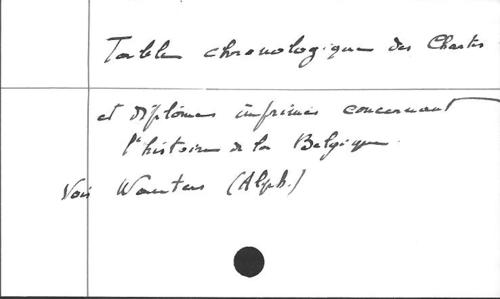 Table chronologique des Chartes
et diplômes imprimés concernant
l'histoire de la Belgique.
Voir Wauters (Alph.)